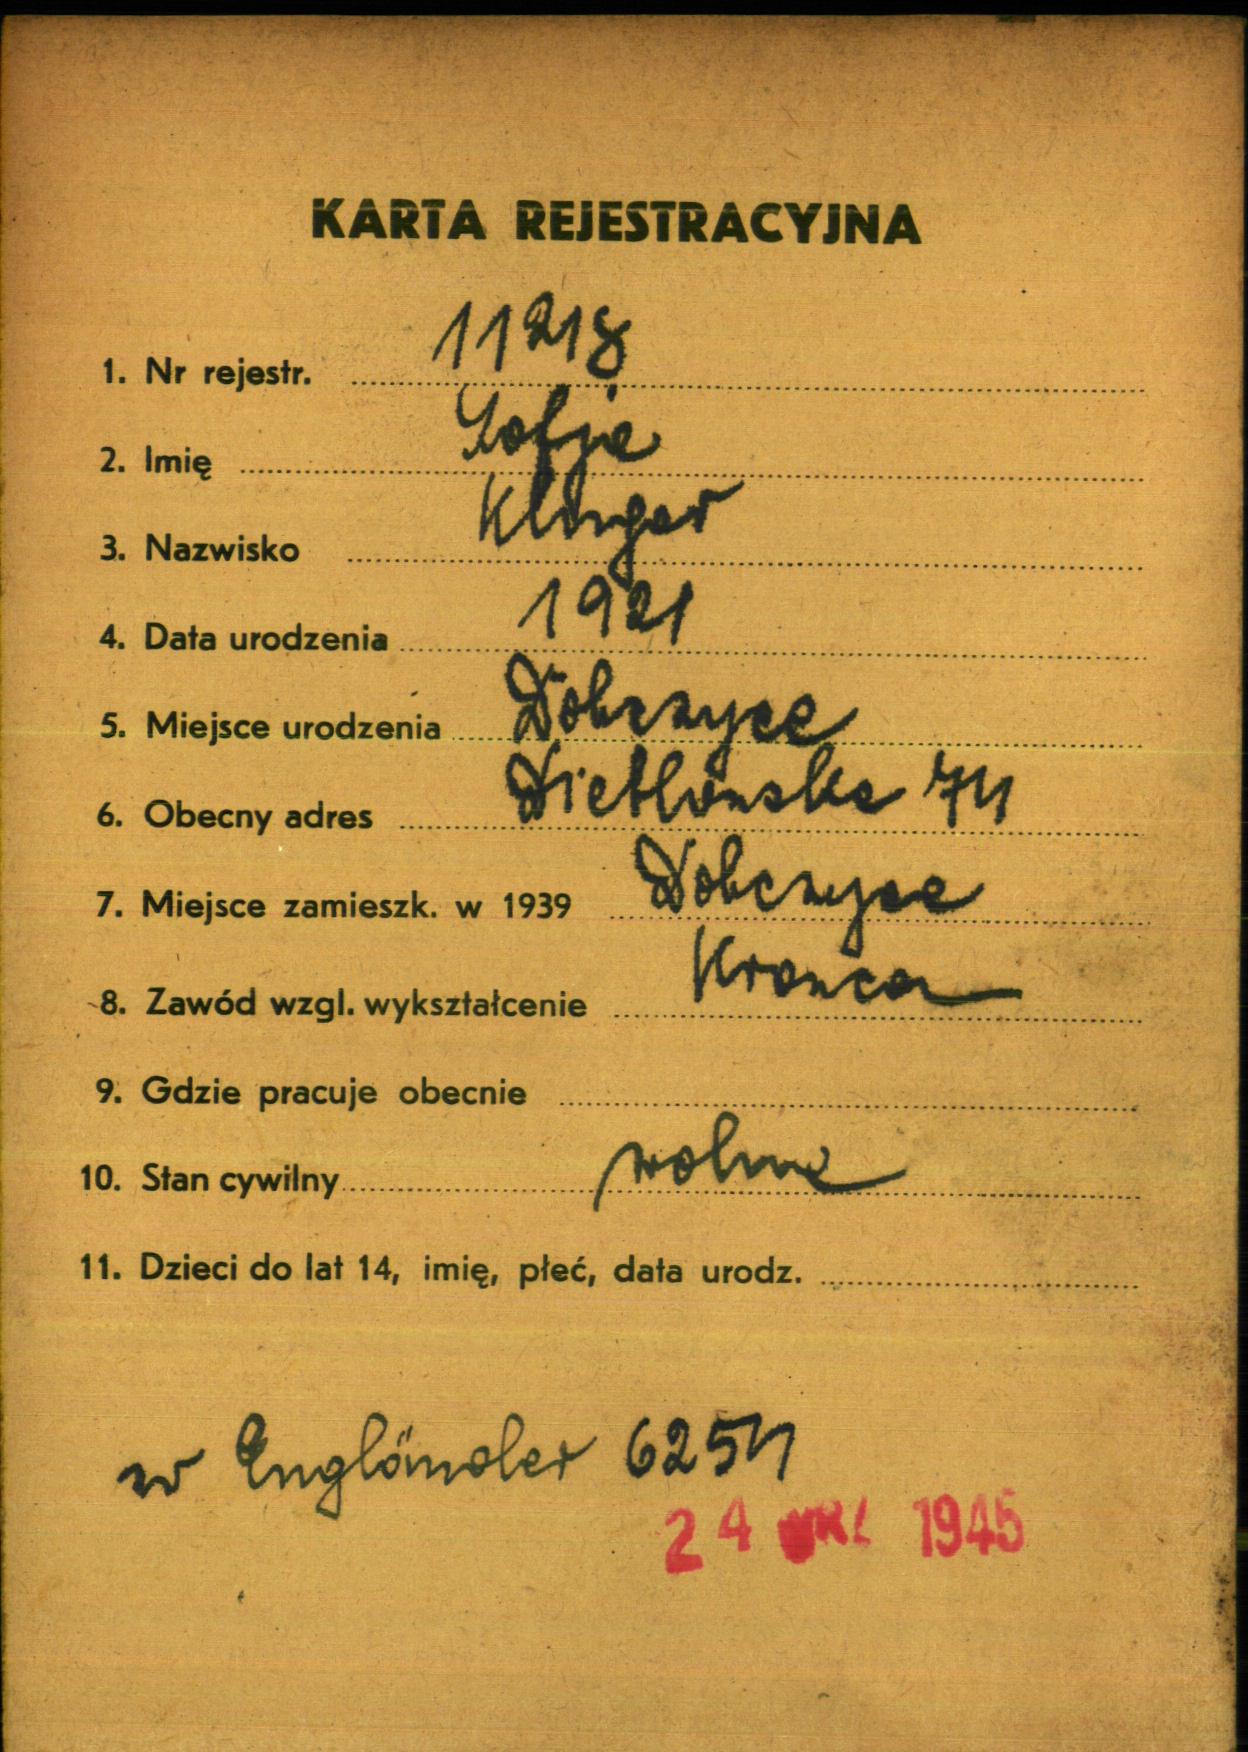 KARTA REJESTRACYJNA
1. Nr rejestr. 11218
2. Imię Zofja
3. Nazwisko Klinger
4. Data urodzenia 1921
5. Miejsce urodzenia Dobczyce
6. Obecny adres Dietlowska 74
7. Miejsce zamieszk. w 1939 Dobczyce
8. Zawód wzgl. wykształcenie
9. Gdzie pracuje obecnie
10. Stan cywilny wolna
11. Dzieci do lat 14, imię, płeć, data urodz.
Engländer 6254
24 WRZ 1945